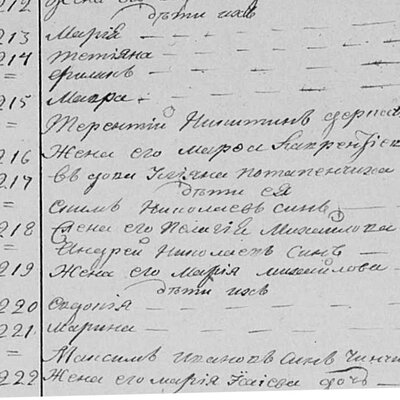 212 Жена его
дѣти ихъ
213 Марія
214 Тетіяна
= Филипъ
215 Мавра
= Терентій Никитинъ
216 Жена его Марѳа
217 вдова Уліяна Потапенчиха
дѣти ея
= Николаевъ синъ
218 Жена его Пелагія Михайлова
= Андрей Николаевъ Синъ
219 Жена его Марія михайлова
дѣти ихъ
220 Евдокія
221 Марина
= Максимъ Ивановъ Синъ
222 Жена его марія дочь